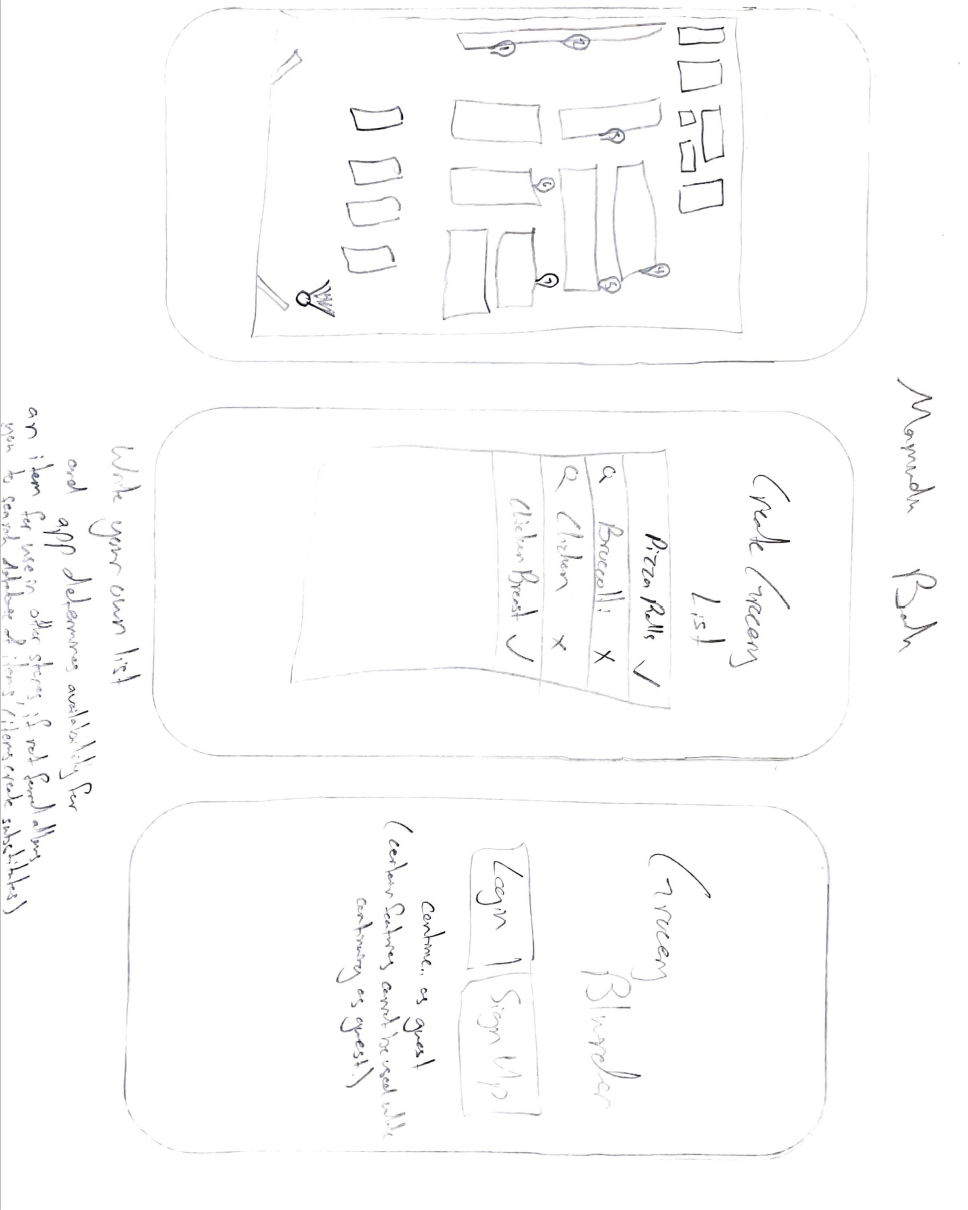 Bah
1
2
3
4
5
6
7
Create Grocery
List
Pizza Rolls ✓
Q Broccolli X
Q Chicken X
Chicken Breast ✓
Write your own list
and app determines availability for
an item for use in other stores, if not found allows
you to search database of items (items create substitutes)
Grocery
Blunder
Login
Sign Up
Continue as guest
(certain features cannot be used while
continuing as guest)